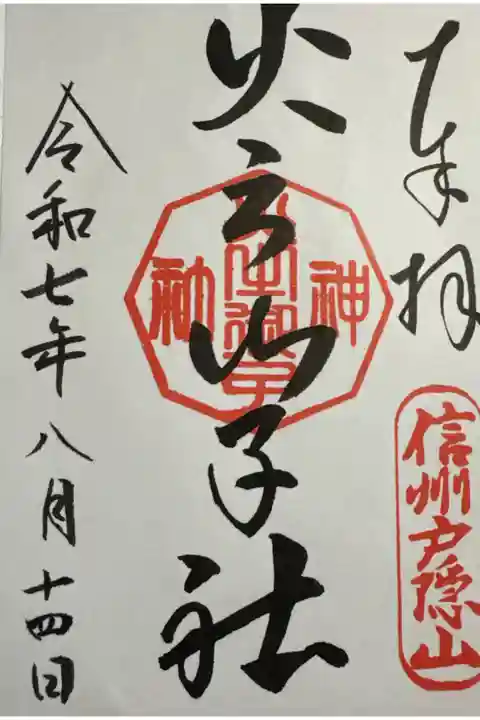 奉拝
信州戸隠山
火之御子社
神
社
令和七年八月十四日